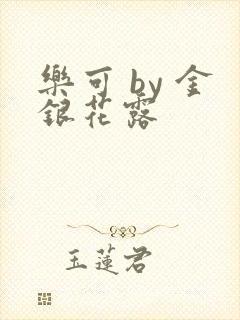 樂可 by 金
銀花露
玉蓮君